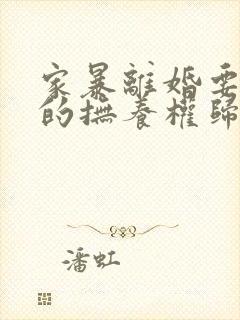 家暴離婚要
的撫養權歸
潘虹